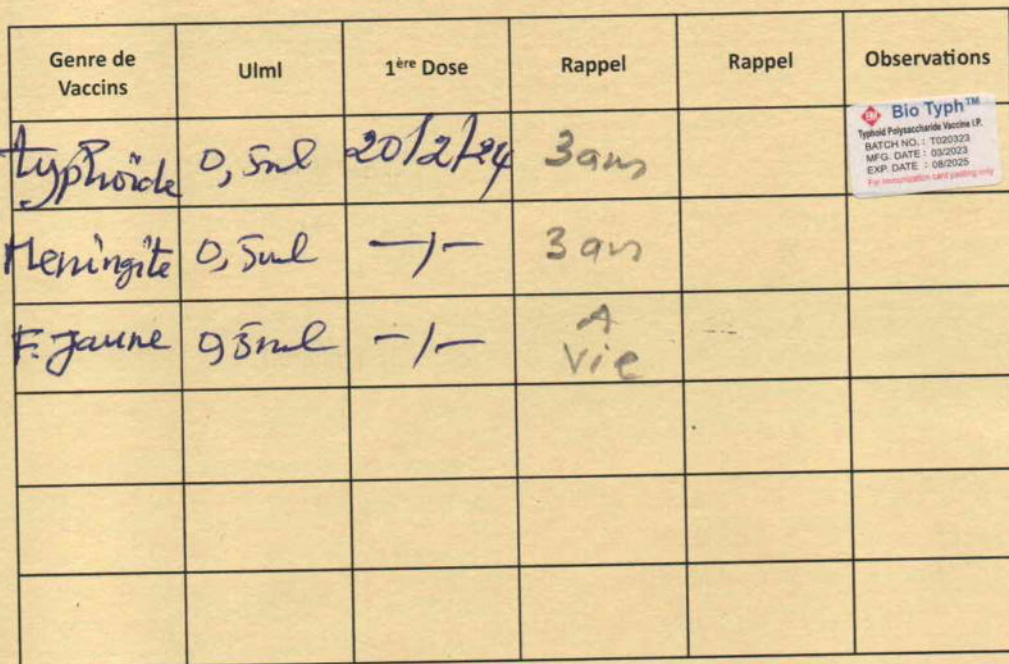 Genre de Vaccins UIml 1ère Dose Rappel Rappel Observations
typhoïde 0,5ml 20/2/24 3ans
Bio Typh™
Typhoid Polysaccharide Vaccine I.P.
BATCH NO. : T020323
MFG. DATE : 03/2023
EXP. DATE : 08/2025
For immunization card pasting only
Meningite 0,5ml —/— 3 ans
F. Jaune 0,5ml —/— A Vie